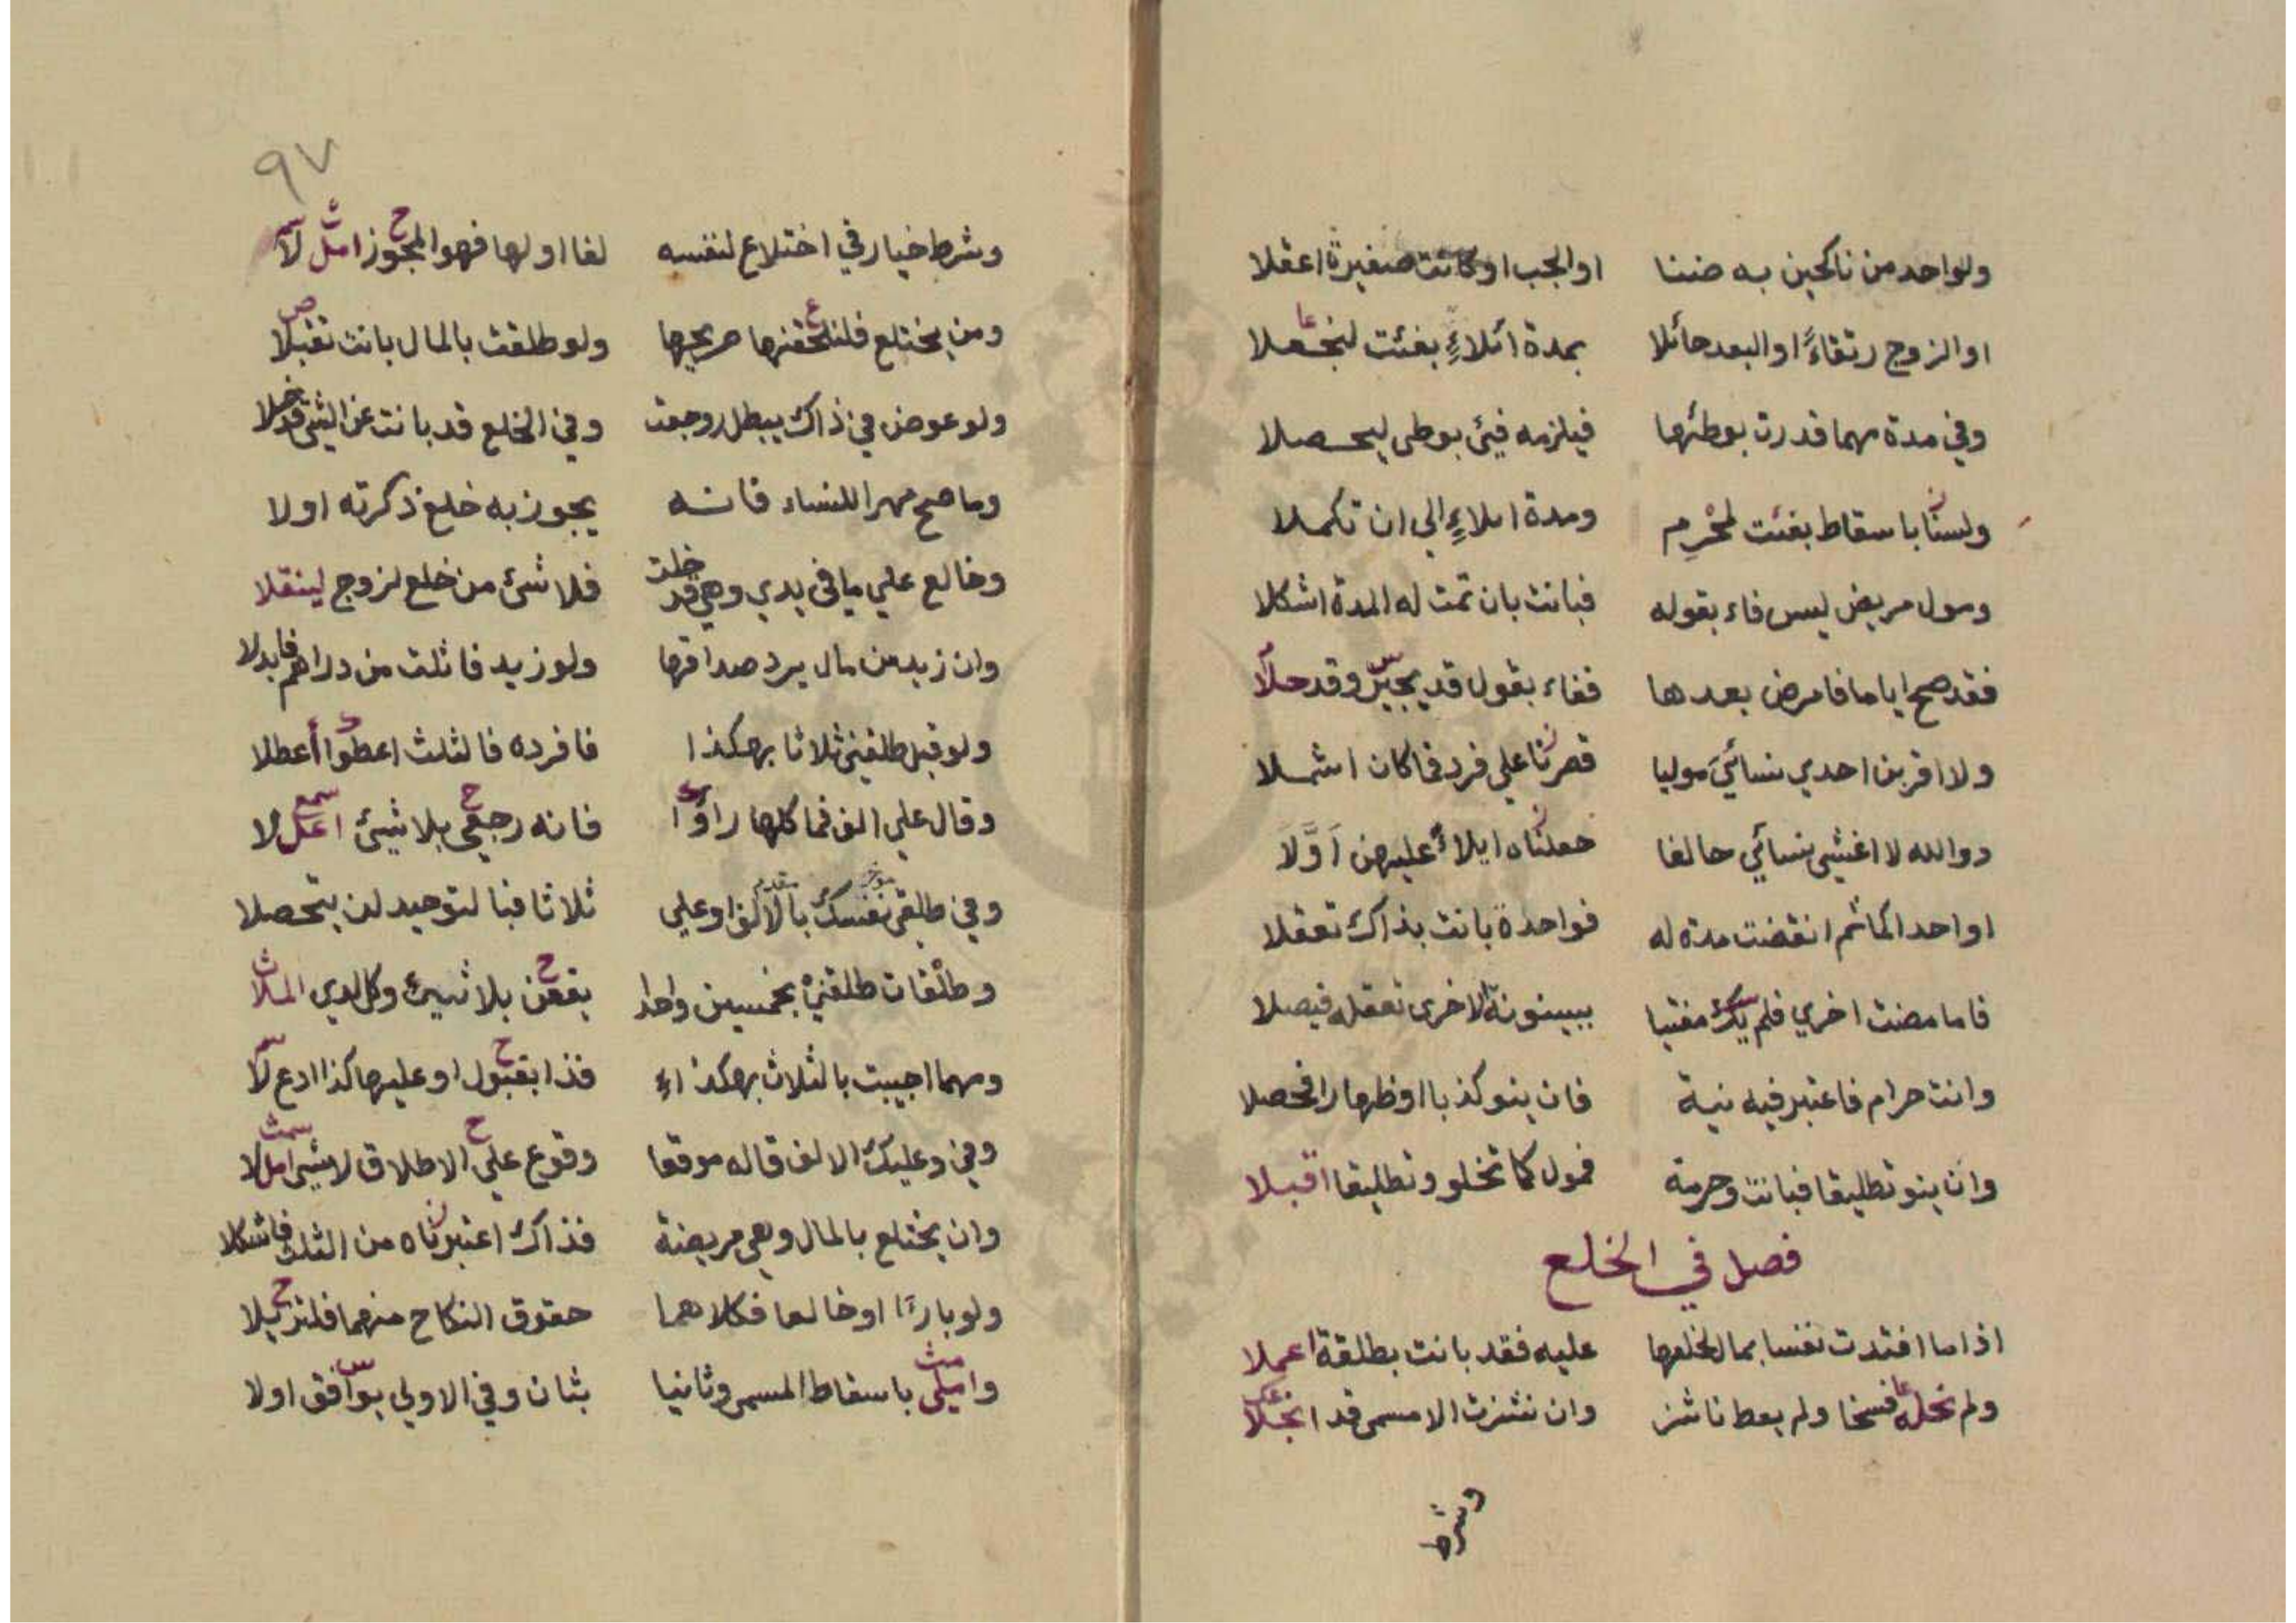 ولواحد من ناكحين به ضننا اوالجب اوكانت صغيرة اعقلا
اوالزوج رتقاءً اوالبعد حائلا بمدة ائلاءٍ بفئت لنجعلا
وفي مدة مهما قدرت بوطئها فيلزمه فيئ بوطى ليحصلا
ولسنا باسقاط بفئت لمحرم ومدة املاءٍ الي ان تكملا
ومول مريض ليس فاء بقوله فبانت بان تمت له المدة اشكلا
فقد صح اياما فامرض بعدها ففاء بقول قد يجيز وقد حلا
ولا اقربن احدي نسائي موليا قصرنا علي فرد فما كان اشملا
ووالله لا اغشي نسائي حالفا جعلناه ايلاءً عليهن اوّلا
اواحداكما ثم انقضت مدة له فواحدة بانت بذاك تعقلا
فاما مضت اخري فلم يك مفتيا ببينونة الاخرى تعقله فيصلا
وانت حرام فاعتبر فيه نية فان ينو كذبا اوظهارا فحصلا
وان ينو تطليقا فبانت وحرمة فمول كما تخلو وتطليقا اقبلا
فصل في الخلع
اذاما افتدت نفسا بمال لخلعها عليه فقد بانت بطلقة اعملا
ولم نجله فسخا ولم يعط ناشز وان نشزت الا مسمى قد انجلا
وشرط
٩٧
وشرط خيار في اختلاع لنفسه لغا اولها فهو المجوز امل لا
ومن يختلع فلنلحقنها صريحها ولو طلقت بالمال بانت تقبلا
ولو عوض في ذاك يبطل روجعت وفي الخلع قد بانت عن الشئ قد خلا
وما صح مهرا للنساء فانه يجوز به خلع ذكرته اولا
وخالع علي ما في يدي وهي قد خلت فلا شئ من خلع لزوج لينقلا
وان زيد من مال يرد صداقها ولو زيد فاثلت من دراهم فابدلا
ولو قيل طلقني ثلاثا بهكذا فافرده فالثلث اعطوا أعطلا
وقال علي الف فما كلها راوا فانه رجعي بلا شيئ اعل لا
وفي طلقي نفسك بالالف اوعلي ثلاثا فبالتوحيد لن يتحصلا
وطلقات طلقني بخمسين واحدا يقعن بلا شيئ وكل لدي الملا
ومهما اجيبت بالثلاث بهكذا فذا بقبول اوعليها كذا ادع لا
وفي وعليك الالف قاله موقعا وقوع علي الاطلاق لا شئ امل لا
وان يختلع بالمال وهي مريضة فذاك اعتبرناه من الثلث فاشكلا
ولو بارئا اوخالعا فكلاهما حقوق النكاح منهما فلتزيلا
واملى باسقاط المسمى وثانيا بثان وفي الاولي يوافق اولا